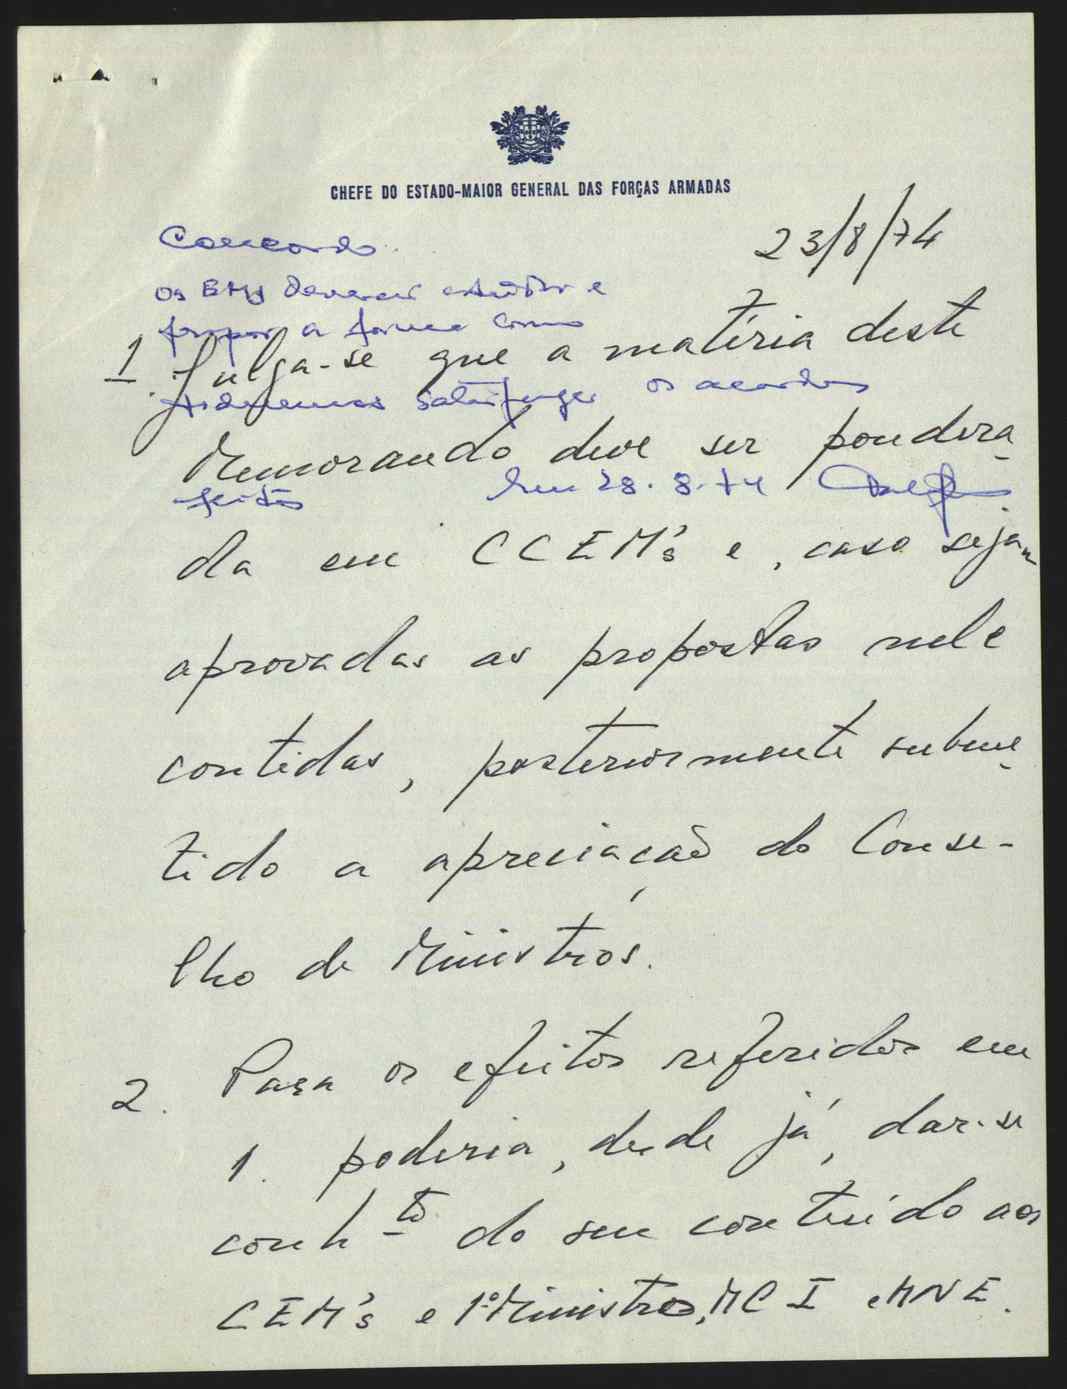 CHEFE DO ESTADO-MAIOR GENERAL DAS FORÇAS ARMADAS
23/8/74
Concordo.
Os EMs deverão estudar e
propor a forma como
poderemos satisfazer os acordos
feitos
28.8.74
1. Julga-se que a matéria deste
Memorando deve ser pondera-
da em CCEM's e, caso sejam
aprovadas as propostas nele
contidas, posteriormente subme-
tido a apreciação do Conse-
lho de Ministros.
2. Para os efeitos referidos em
1. poderia, desde já, dar-se
conhto do seu conteúdo aos
CEM's e 1º Ministro, MCI e MNE.